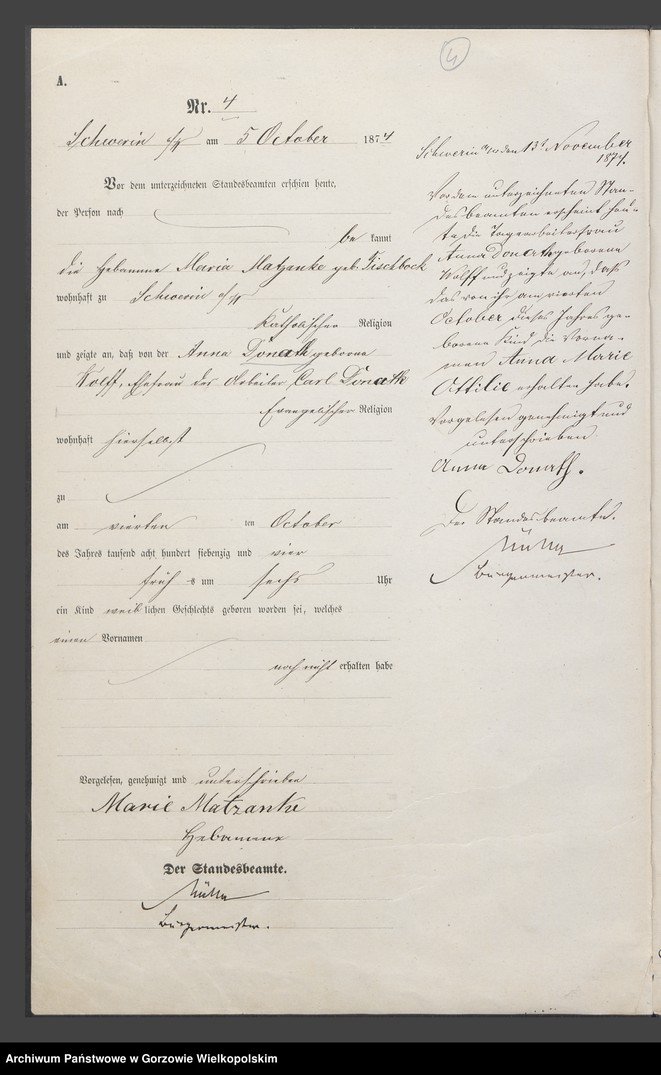 4
A.
Nr. 4
Schwerin a/W am 5 October 1874
Vor dem unterzeichneten Standesbeamten erschien heute,
der Person nach
bekannt
die Hebamme Maria Matzanke geb. Fischbock
wohnhaft zu Schwerin a/W
Katholischer Religion
und zeigte an, daß von der Anna Donath geborene
Wolff, Ehefrau des Arbeiter Carl Donath
Evangelischer Religion
wohnhaft hierselbst
zu
am vierten ten October
des Jahres tausend acht hundert siebenzig und vier
früh -s um sechs Uhr
ein Kind weiblichen Geschlechts geboren worden sei, welches
einen Vornamen
noch nicht erhalten habe
Vorgelesen, genehmigt und unterschrieben
Marie Matzanke
Hebamme
Der Standesbeamte.
Müller
Bürgermeister.
Schwerin a/W den 13t November
1874.
Vor dem unterzeichneten Stan-
desbeamten erscheint heu-
te die Tagearbeiterfrau
Anna Donath geborene
Wolff und zeigte an, daß
das von ihr am vierten
October dieses Jahres ge-
borene Kind die Vorna-
men Anna Marie
Ottilie erhalten habe.
Vorgelesen genehmigt und
unterschrieben
Anna Donath.
Der Standesbeamte.
Müller
Bürgermeister.
Archiwum Państwowe w Gorzowie Wielkopolskim